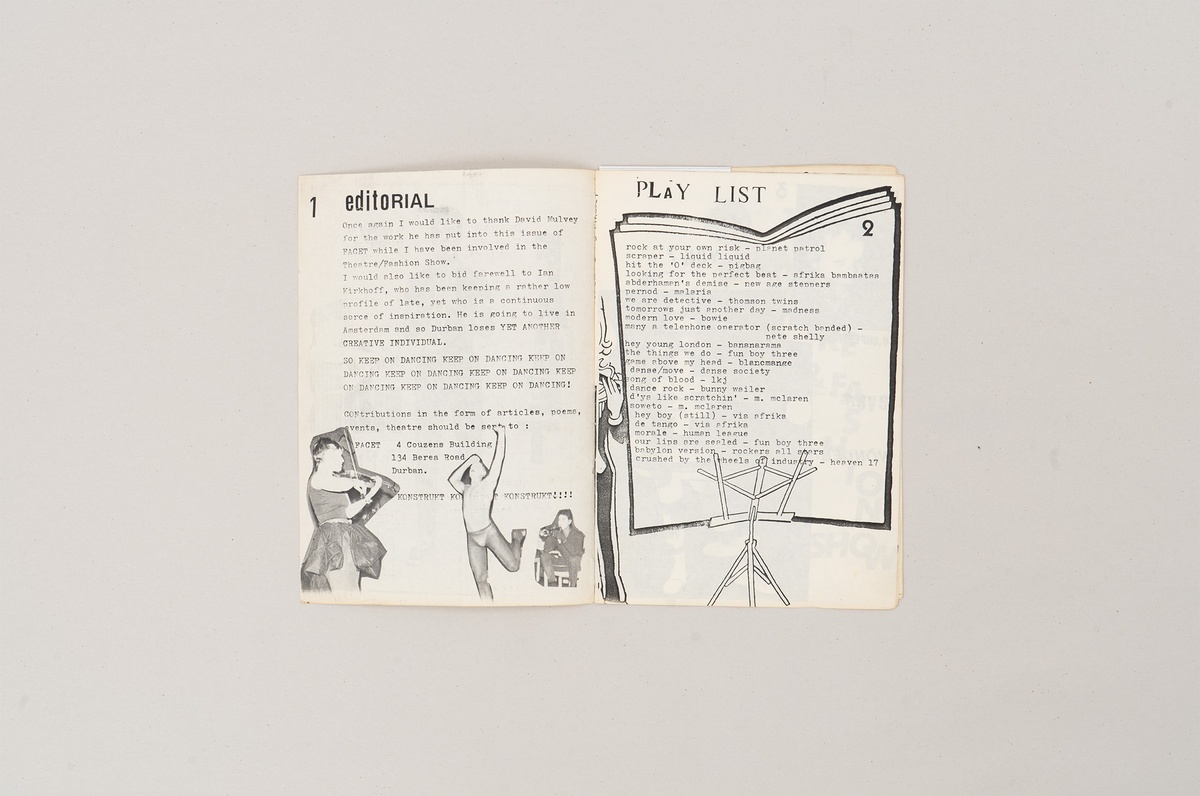 1
editORIAL
Once again I would like to thank David Mulvey
for the work he has put into this issue of
FACET while I have been involved in the
Theatre/Fashion Show.
I would also like to bid farewell to Ian
Kirkhoff, who has been keeping a rather low
profile of late, yet who is a continuous
sorce of inspiration. He is going to live in
Amsterdam and so Durban loses YET ANOTHER
CREATIVE INDIVIDUAL.
SO KEEP ON DANCING KEEP ON DANCING KEEP ON
DANCING KEEP ON DANCING KEEP ON DANCING KEEP
ON DANCING KEEP ON DANCING KEEP ON DANCING!
CONtributions in the form of articles, poems,
events, theatre should be sent to :
FACET 4 Couzens Building
134 Berea Road
Durban.
KONSTRUKT KONSTRUKT!!!!
PLAY LIST
2
rock at your own risk - planet patrol
scraper - liquid liquid
hit the 'O' deck - pigbag
looking for the perfect beat - afrika bambaataa
abderhaman's demise - new age steppers
pernod - malaria
we are detective - thomson twins
tomorrows just another day - madness
modern love - bowie
many a telephone operator (scratch bended) -
pete shelly
hey young london - bananarama
the things we do - fun boy three
game above my head - blancmange
danse/move - danse society
song of blood - lkj
dance rock - bunny wailer
d'ya like scratchin' - m. mclaren
soweto - m. mclaren
hey boy (still) - via afrika
de tango - via afrika
morale - human league
our lips are sealed - fun boy three
babylon version - rockers all stars
crushed by the wheels of industry - heaven 17